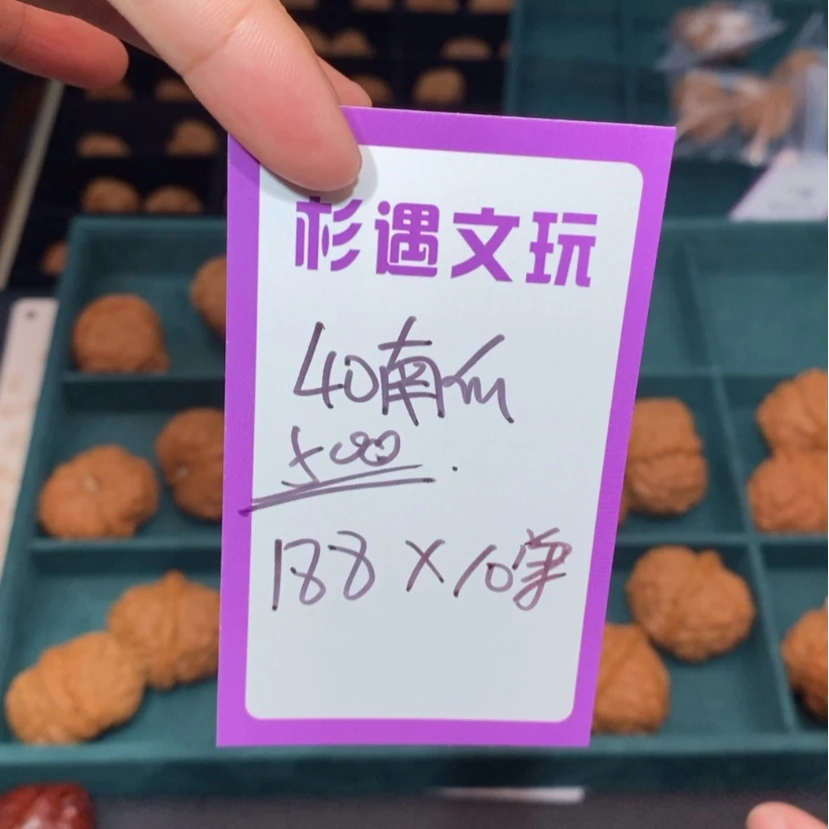 杉遇文玩
40南瓜
500
188×10单